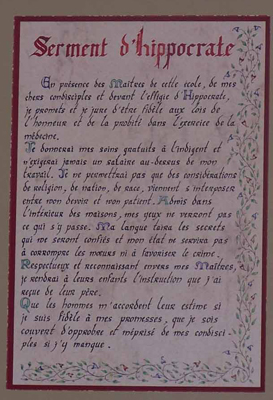 Serment d'hippocrate
En présence des Maîtres de cette école, de mes
chers condisciples et devant l'effigie d'Hippocrate,
je promets et je jure d'être fidèle aux lois de
l'honneur et de la probité dans l'exercice de la
médecine.
Je donnerai mes soins gratuits à l'indigent et
n'exigerai jamais un salaire au-dessus de mon
travail. Je ne permettrai pas que des considérations
de religion, de nation, de race, viennent s'interposer
entre mon devoir et mon patient. Admis dans
l'intérieur des maisons, mes yeux ne verront pas
ce qui s'y passe. Ma langue taira les secrets
qui me seront confiés et mon état ne servira pas
à corrompre les mœurs ni à favoriser le crime.
Respectueux et reconnaissant envers mes Maîtres,
je rendrai à leurs enfants l'instruction que j'ai
reçue de leur père.
Que les hommes m'accordent leur estime si
je suis fidèle à mes promesses, que je sois
couvert d'opprobre et méprisé de mes condisci-
ples si j'y manque.